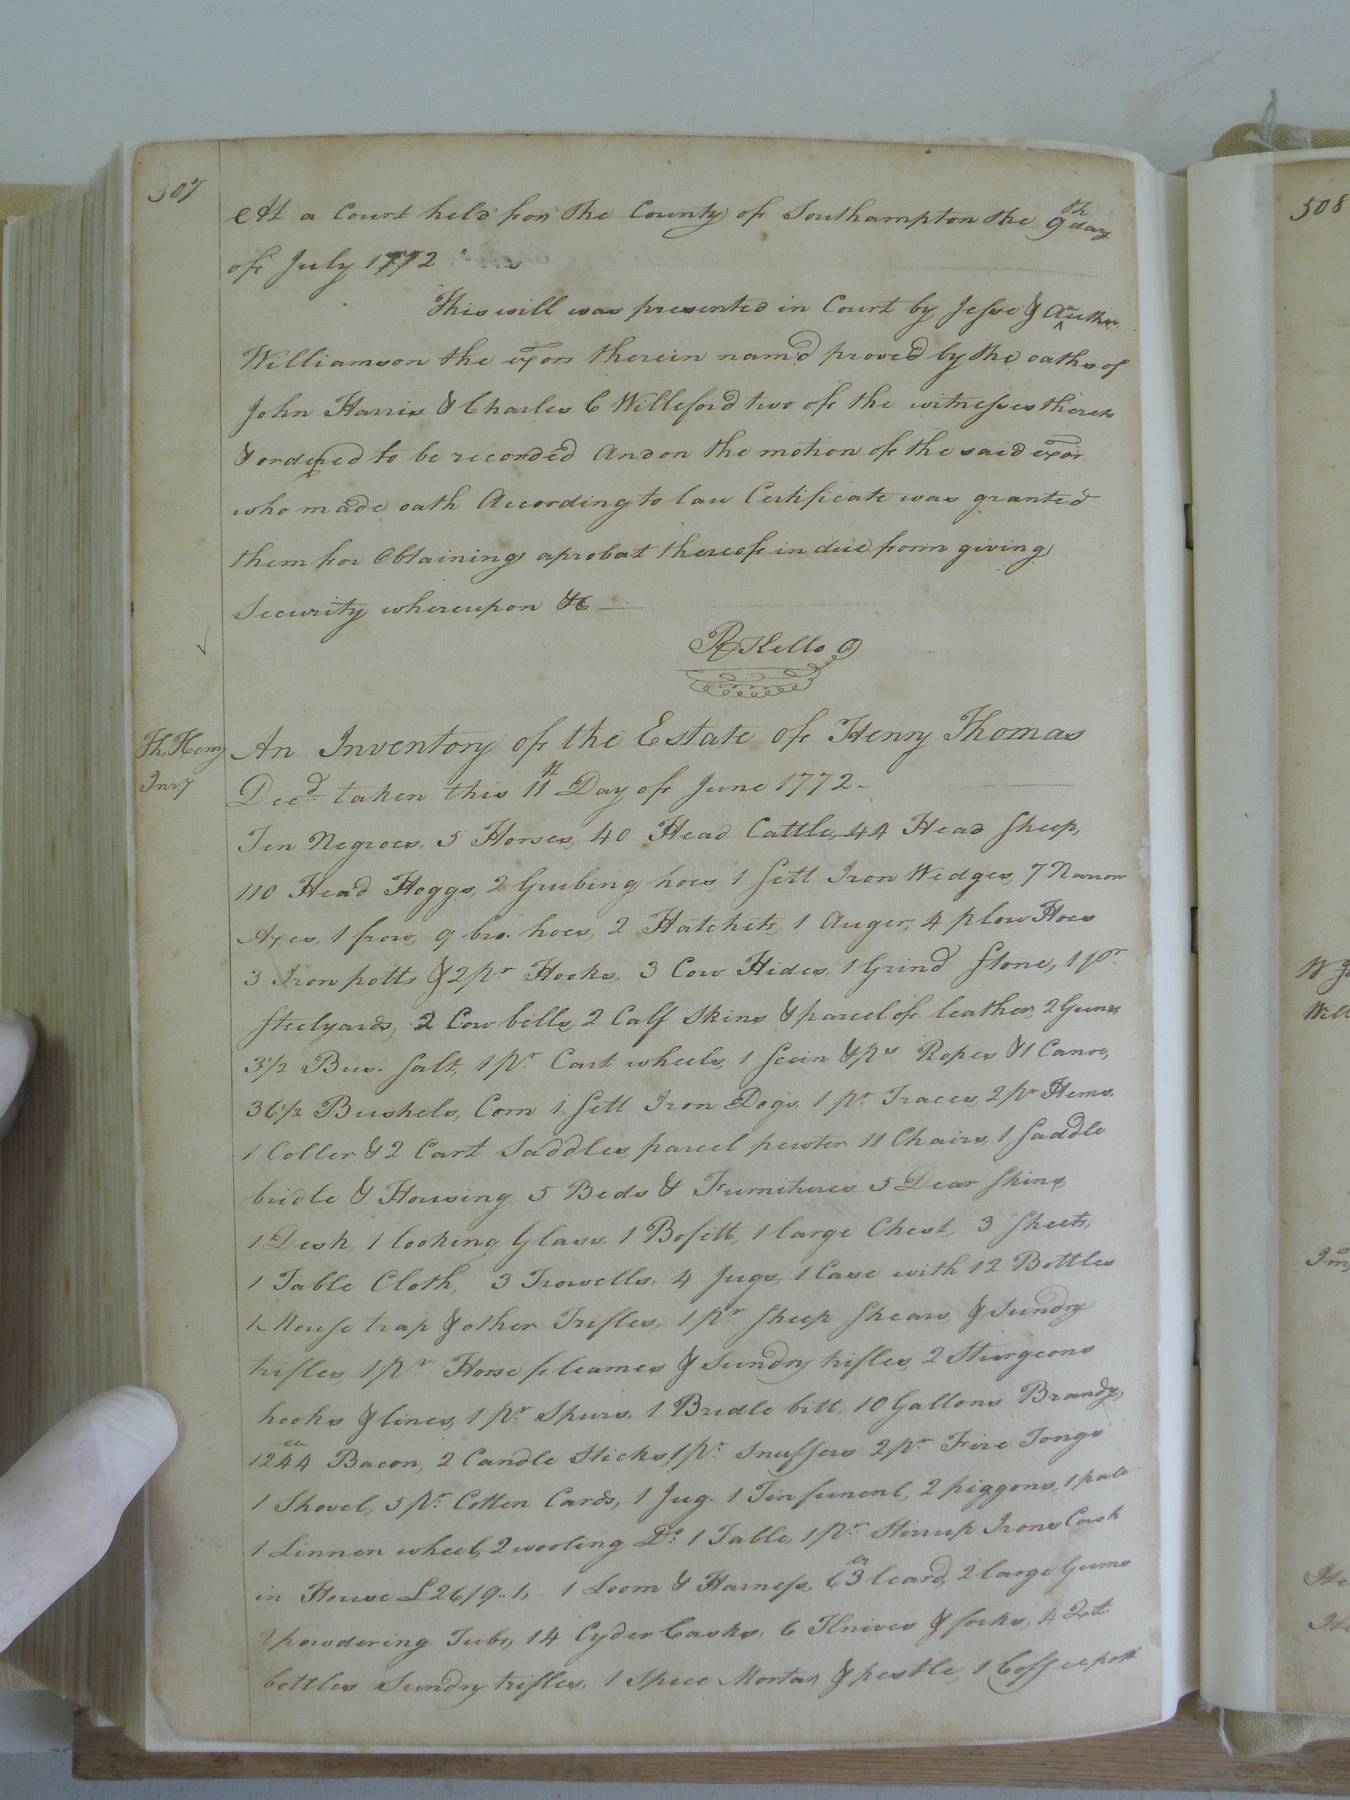 507
At a Court held for the County of Southampton the 9th day
of July 1772
This will was presented in Court by Jesse &
Williamson the exors therein nam'd proved by the oaths of
John Harris & Charles C Willeford two of the witnesses thereto
& ordered to be recorded And on the motion of the said exors
who made oath According to law Certificate was granted
them for Obtaining a probat thereof in due form giving
Security whereupon &c
R Kello
Th. Henry
Invy
An Inventory of the Estate of Henry Thomas
Decd. taken this 11th Day of June 1772.
Ten Negroes, 5 Horses, 40 Head Cattle, 44 Head Sheep,
110 Head Hoggs, 2 Grubing hoes, 1 Sett Iron Wedges, 7 Narrow
Axes, 1 frow, 9 bro. hoes, 2 Hatchets, 1 Auger, 4 plow Hoes
3 Iron potts & 2 pr Hooks, 3 Cow Hides, 1 Grind Stone, 1 pr
Steelyards, 2 Cow bells, 2 Calf Skins & parcel of leather, 2 Guns
3 1/2 Bus. Salt, 1 pr. Cart wheels, 1 Sein & ps Ropes & 1 Canoe,
36 1/2 Bushels, Corn 1 Sett Iron Dogs, 1 pr. Traces, 2 pr Hems,
1 Coller & 2 Cart Saddles, parcel pewter 11 Chairs, 1 Saddle
bridle & Housing 5 Beds & Furnitures 5 Dear Skins,
1 Desk, 1 looking Glass, 1 Bofitt, 1 large Chest, 3 Sheets,
1 Table Cloth, 3 Trowells, 4 Jugs, 1 Case with 12 Bottles
1 Mouse trap & other Trifles, 1 pr Sheep Shears & Sundry
trifles 1 pr. Horse fleames & Sundry trifles, 2 Sturgeons
hooks & lines, 1 pr. Spurs, 1 Bridle bitt, 10 Gallons Brandy,
1244 Bacon, 2 Candle Sticks, 1 pr. Snuffers 2 pr. Fire Tongs
1 Shovel, 5 pr. Cotten Cards, 1 Jug. 1 Tin funenl, 2 piggons, 1 pale
1 Linnen wheel, 2 wooling Do. 1 Table, 1 pr. Stirrup Irons Cash
in House £26/9..1, 1 Loom & Harness, 63 leard, 2 large Gums
2 powdering Tubs, 14 Cyder Casks, 6 Knives & forks, 4 Qt
bottles Sundry trifles, 1 Spice Mortar & pestle, 1 Coffee pott
508